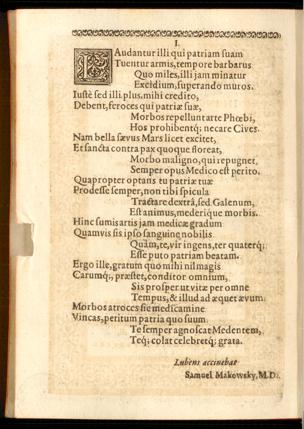 I.
LAudantur illi qui patriam suam
Tuentur armis, tempore barbarus
Quo miles, illi jam minatur
Excidium, superando muros.
Iustè sed illi plus, mihi credito,
Debent, feroces qui patriæ suæ,
Morbos repellunt arte Phœbi,
Hos prohibentq; necare Cives.
Nam bella sævus Mars licet excitet,
Et sancta contra pax quoque floreat,
Morbo maligno, qui repugnet,
Semper opus Medico est perito.
Quapropter optans tu patriæ tuæ
Prodesse semper, non tibi spicula
Tractare dextrâ, sed Galenum,
Est animus, mederique morbis.
Hinc sumis artis jam medicæ gradum
Quamvis sis ipso sanguine nobilis
Quàm, te, vir ingens, ter quaterq;
Esse puto patriam beatam.
Ergo ille, gratum quo mihi nil magis
Carumq;, præstet, conditor omnium,
Sis prosper ut vitæ per omne
Tempus, & illud adæquet ævum.
Morbos atroces sic medicamine
Vincas, peritum patria quo suum
Te semper agnoscat Medentem,
Teq; colat celebretq; grata.
Lubens accinebat
Samuel Makowsky, M.D.